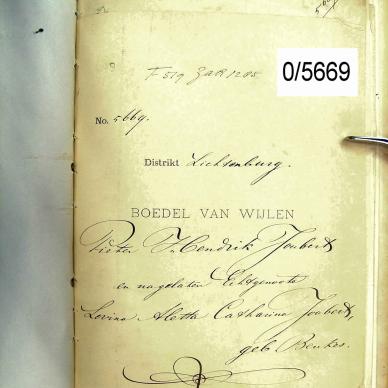 566
0/5669
No. 5669.
Distrikt Lichtenburg.
BOEDEL VAN WIJLEN
Pieter Hendrik Joubert
en nagelaten Echtgenoote
Levina Aletta Catharina Joubert,
geb. Beukes.